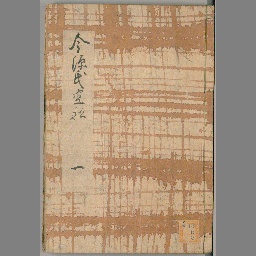 今源氏空船
一